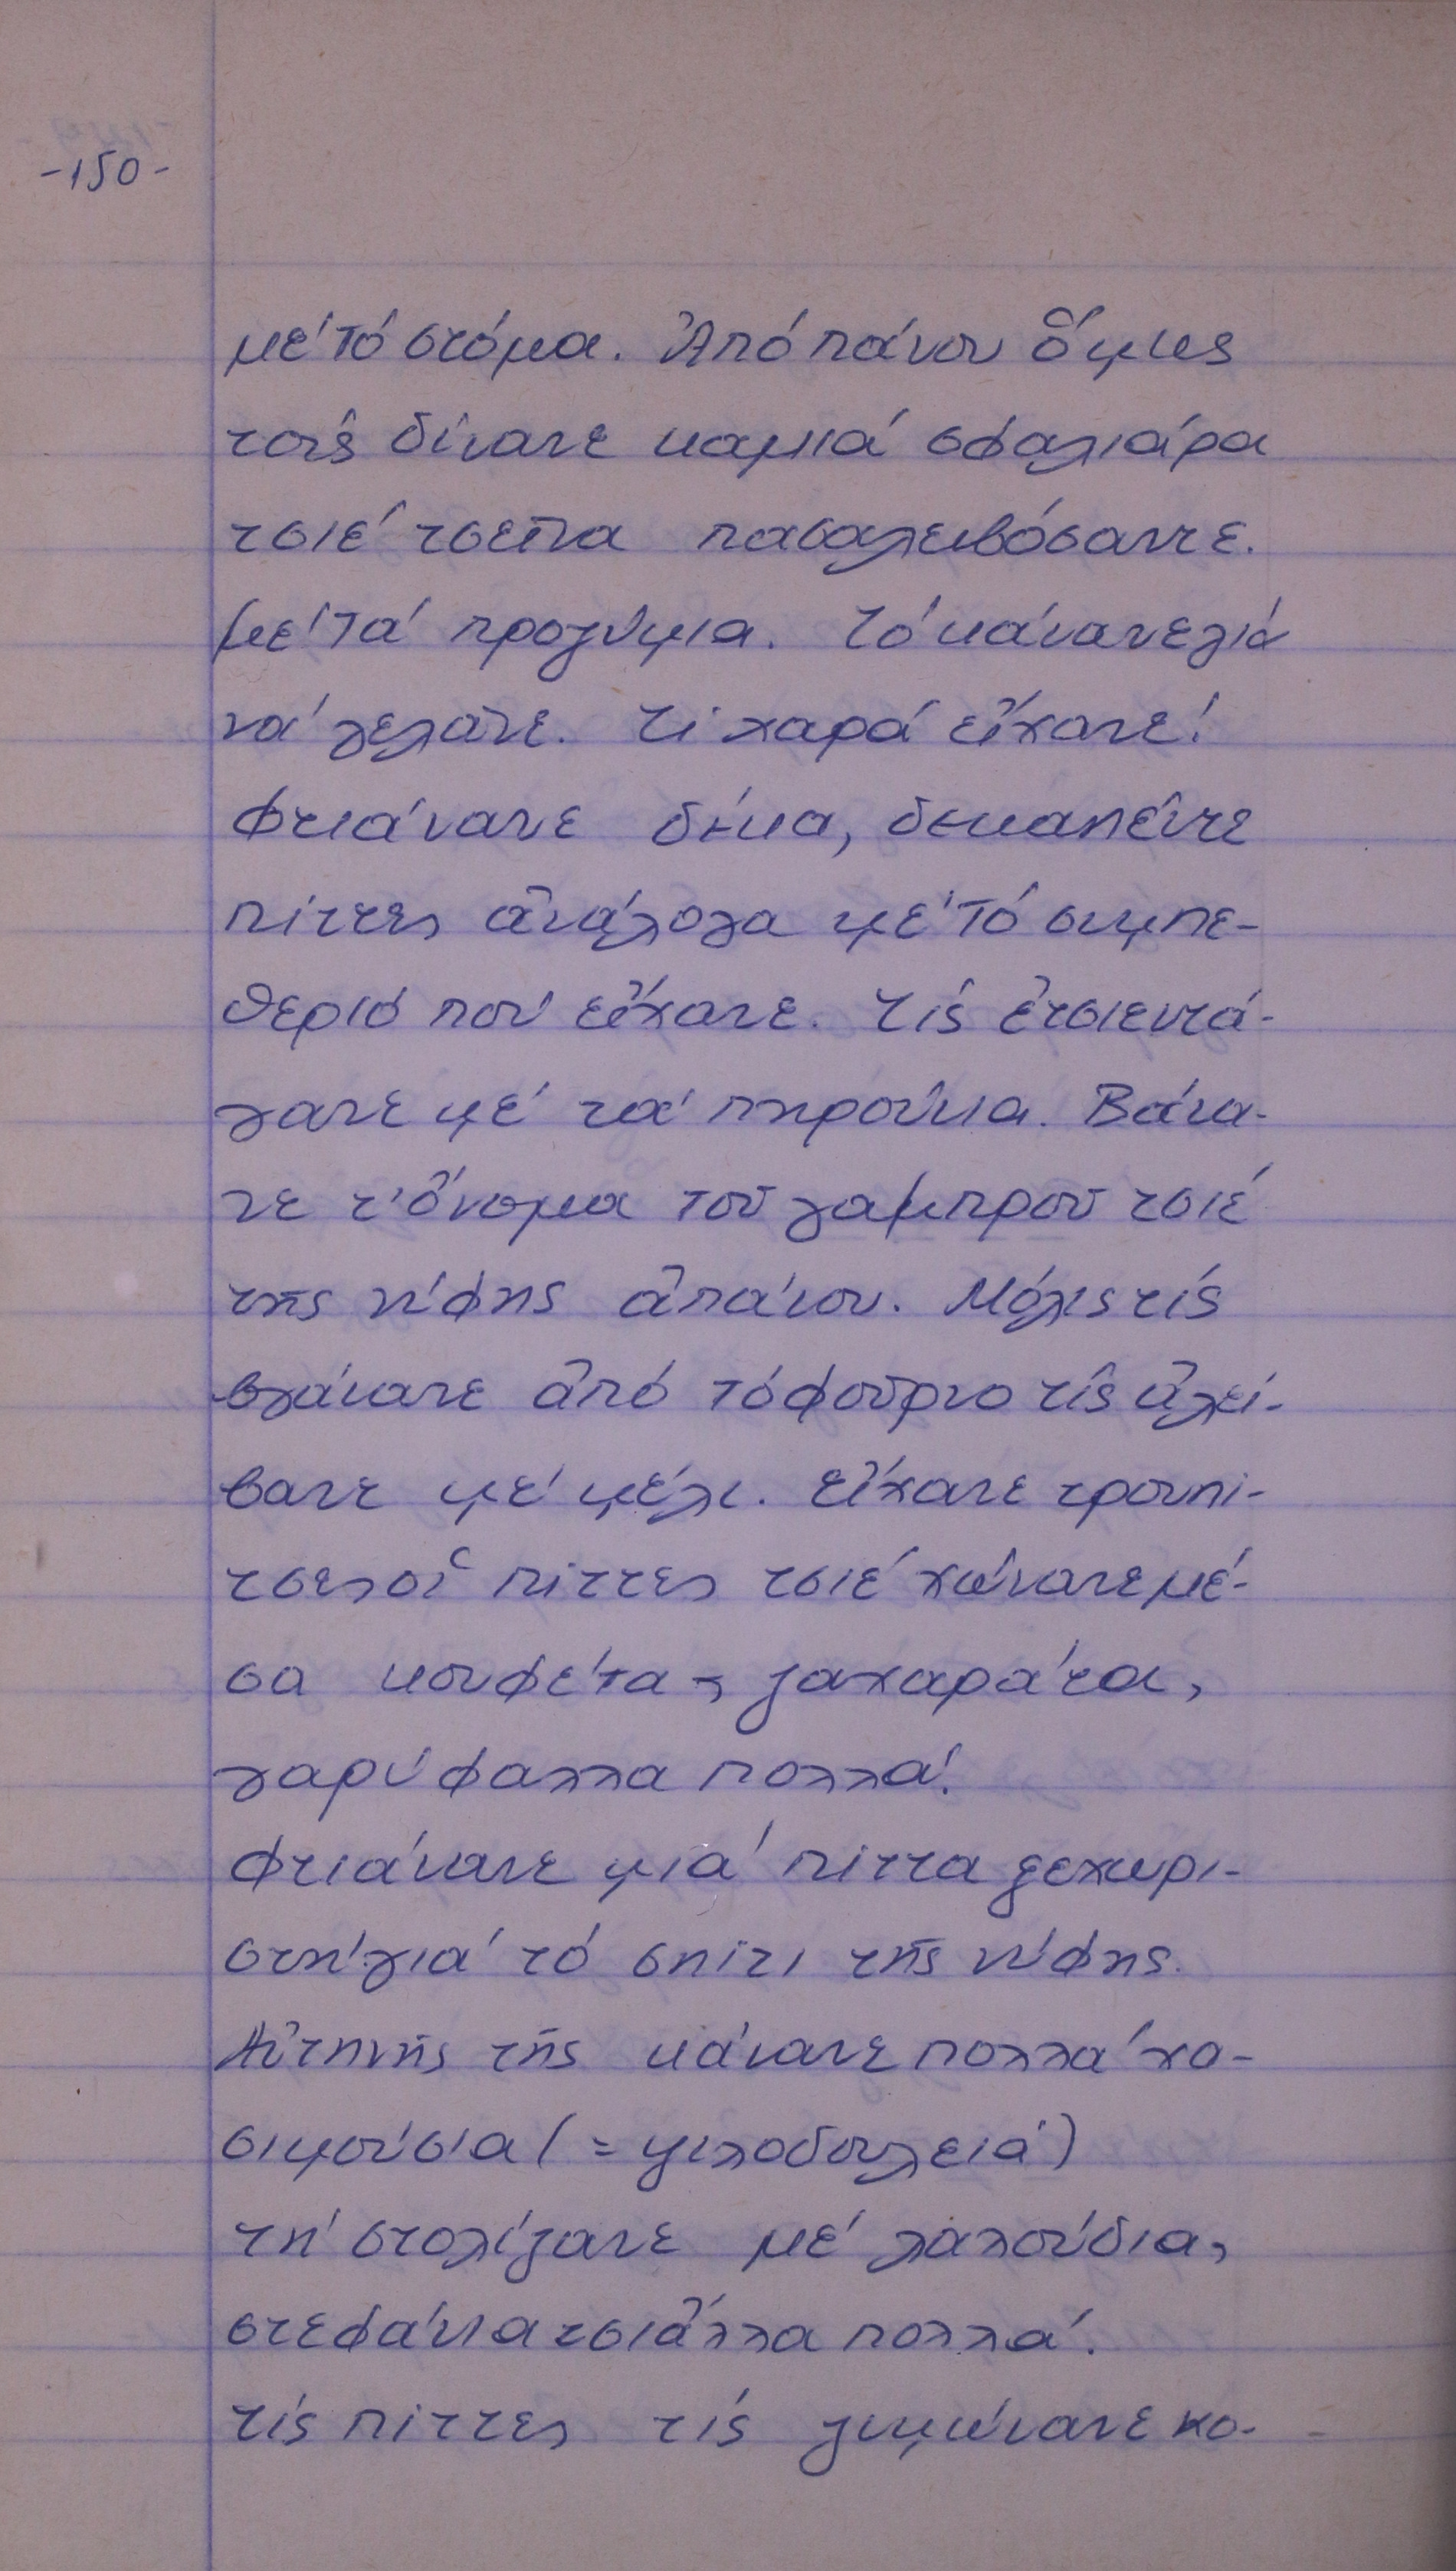 -150-
μέ τό στόμα. Ἀπό πάνου ὅμως
τούς δίνανε καμιά σφαλιάρα
τσιέ τσεῖνα πασαλειβόσαντε.
μέ τά προζύμια. Τό κάνανε γιά
νά γελᾶνε. Τί χαρά εἴχανε!
Φτιάνανε δέκα, δεκαπέντε
πίττες ἀνάλογα μέ τό συμπε-
θεριό πού εἴχανε. Τίς ἐτσιεντά-
γανε μέ τά πηρούνια. Βάνα-
νε τ' ὄνομα τοῦ γαμπροῦ τσιέ
τῆς νύφης ἀπάνου. Μόλις τίς
βγάνανε ἀπό τό φοῦρνο τίς ἀλεί-
βανε μέ μέλι. Εἴχανε τρουπί-
τσες οἱ πίττες τσιέ χώνανε μέ-
σα κουφέτα, ζαχαράτα,
γαρύφαλλα πολλά!
Φτιάνανε μιά πίττα ξεχωρι-
στή γιά τό σπίτι τῆς νύφης.
Αὐτηνῆς τῆς κάνανε πολλά χα-
σιμούσια (= ψιλοδουλειά)
τή στολίζανε μέ λαλούδια,
στεφάνια τσι ἄλλα πολλά.
Τίς πίττες τίς ζυμώνανε κο-